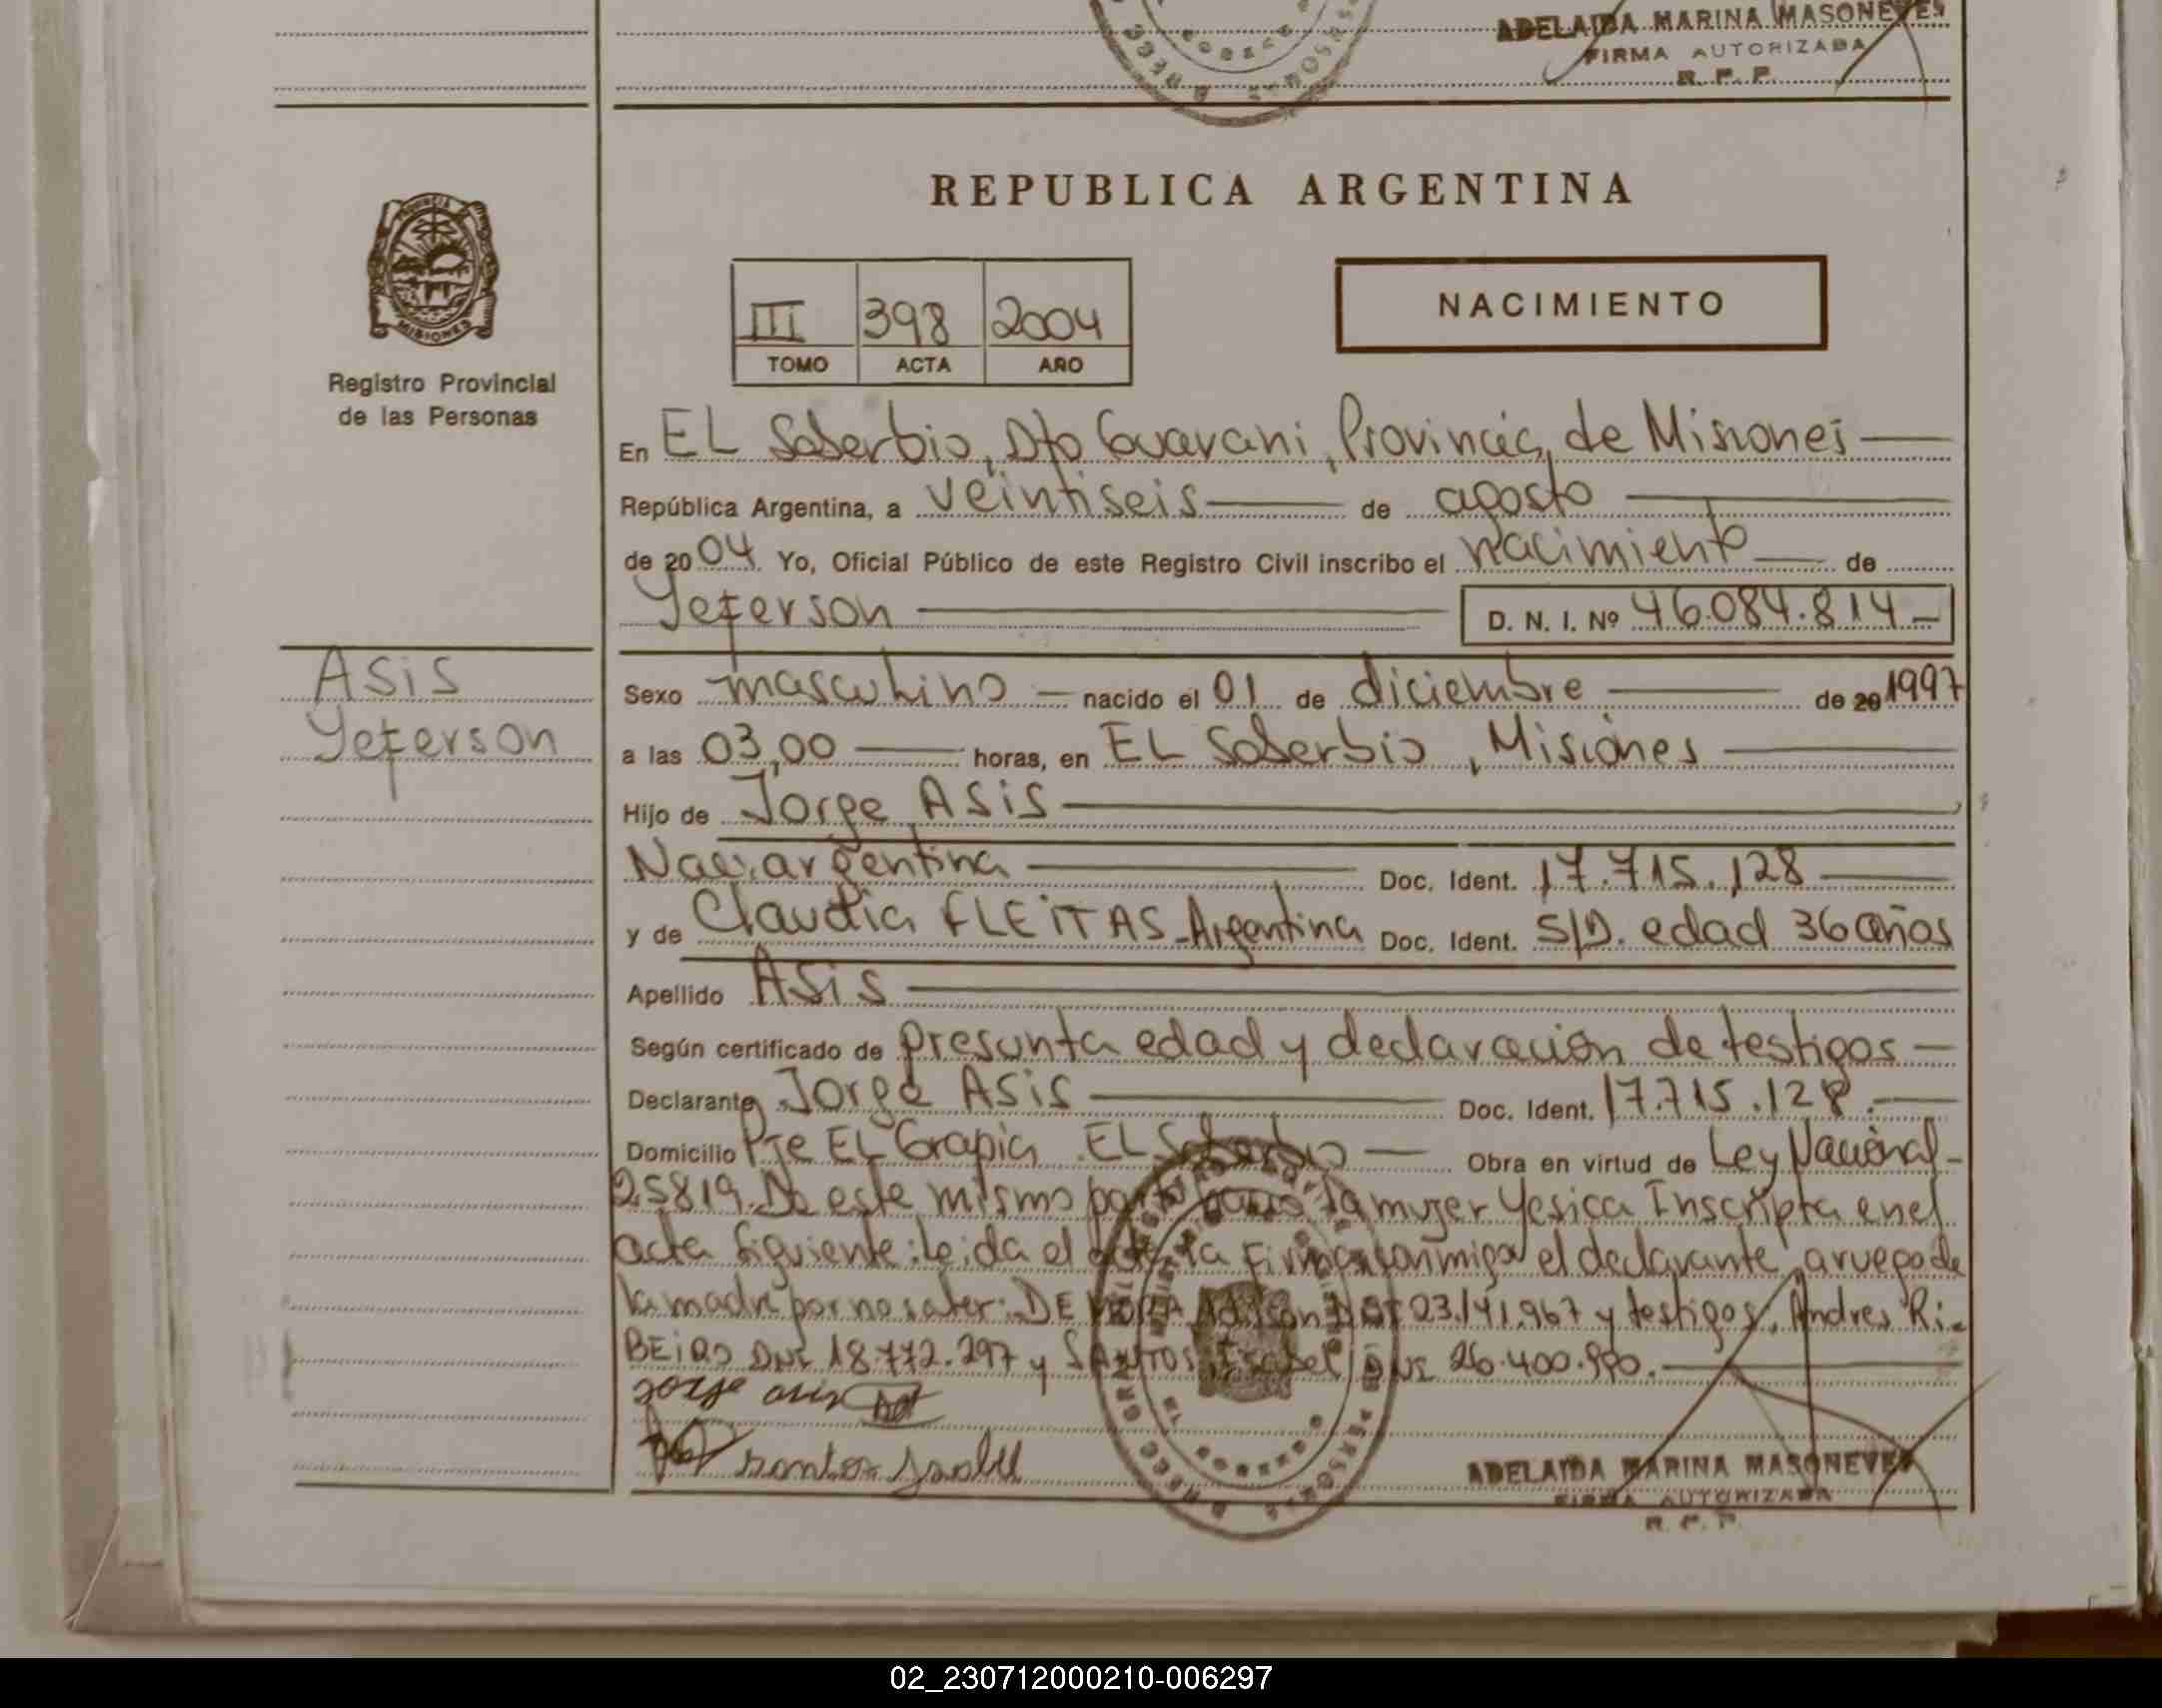 ADELAIDA MARINA MASONEVES
FIRMA AUTORIZADA
R. P. P.
REPUBLICA ARGENTINA
PROVINCIA
MISIONES
Registro Provincial
de las Personas
III 398 2004
TOMO ACTA AÑO
NACIMIENTO
En EL Soberbio, Dto Guarani, Provincia, de Misiones
República Argentina, a veintiseis de agosto
de 2004. Yo, Oficial Público de este Registro Civil inscribo el nacimiento de
Yeferson D. N. I. Nº 46.084.814
Asis
Yeferson
Sexo masculino nacido el 01 de diciembre de 20 1997
a las 03,00 horas, en EL Soberbio, Misiones
Hijo de Jorge Asis
Nac. argentina Doc. Ident. 17.715.128
y de Claudia FLEITAS - Argentina Doc. Ident. S/D. edad 36 años
Apellido Asis
Según certificado de presunta edad y declaración de testigos
Declarante Jorge Asis Doc. Ident. 17.715.128.
Domicilio Pje EL Grapia. EL Soberbio Obra en virtud de Ley Nacional
25819. De este mismo parto la mujer Yesica Inscripta en el
acta siguiente: Leida el acta la firman conmigo el declarante, a ruego de
la madre por no saber: DE MORA DNI 23.141.967 y testigos: Andres Ri-
BEiRO DNI 18.772.297 y SANTOS, Isabel DNI 26.400.990.
Jorge asis
santos Isabel
ADELAIDA MARINA MASONEVES
FIRMA AUTORIZADA
R. P. P.
02_230712000210-006297